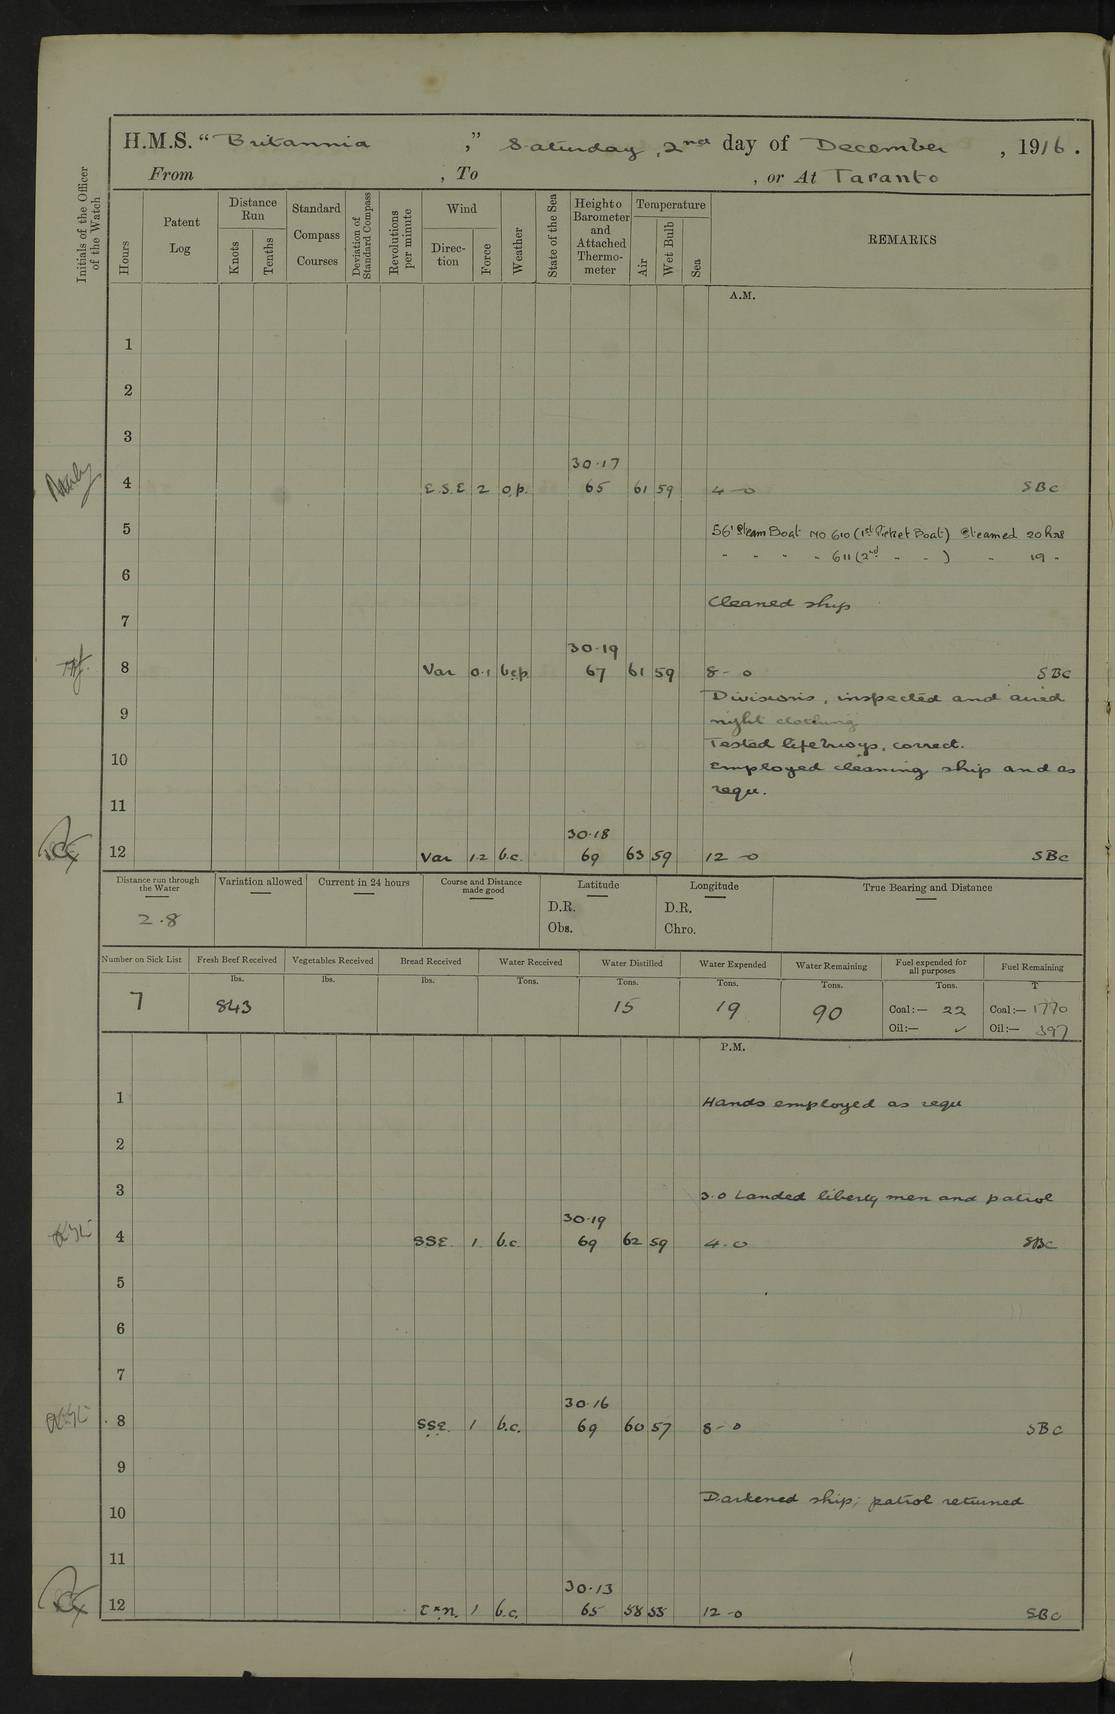 H.M.S. “Britannia ,” Saturday, 2nd day of December , 1916.
From , To , or At Taranto
Initials of the Officer of the Watch
Hours
Patent Log
Distance Run
Knots
Tenths
Standard Compass Courses
Deviation of Standard Compass
Revolutions per minute
Wind
Direction
Force
Weather
State of the Sea
Height o Barometer and Attached Thermometer
Temperature
Air
Wet Bulb
Sea
REMARKS
A.M.
1
2
3
30.17
4 E.S.E 2 o.p. 65 61 59 4-0 SBC
5 56' Steam Boat No 610 (1st Picket Boat) Steamed 20 hrs
" " " " 611 (2nd " " ) " 19 "
6
Cleaned ship
7
30.19
8 Var 0.1 b.c.p. 67 61 59 8-0 SBC
Divisions, inspected and aired
9 night clothing
Tested lifebuoys, correct.
10 Employed cleaning ship and as
requ.
11
30.18
12 Var 1.2 b.c. 69 63 59 12-0 SBC
Distance run through the Water
Variation allowed
Current in 24 hours
Course and Distance made good
Latitude
Longitude
True Bearing and Distance
2.8
D.R.
Obs.
D.R.
Chro.
Number on Sick List
Fresh Beef Received
Vegetables Received
Bread Received
Water Received
Water Distilled
Water Expended
Water Remaining
Fuel expended for all purposes
Fuel Remaining
lbs. lbs. lbs. Tons. Tons. Tons. Tons. Tons. T
7 843 15 19 90
Coal:— 22 Coal:— 1770
Oil:— ✓ Oil:— 397
P.M.
1 Hands employed as requ
2
3 3.0 Landed liberty men and patrol
30.19
4 SSE. 1 b.c. 69 62 59 4.0 SBC
5
6
7
30.16
8 SSE. 1 b.c. 69 60 57 8-0 SBC
9
Darkened ship; patrol returned
10
11
30.13
12 E x N. 1 b.c. 65 58 55 12-0 SBC